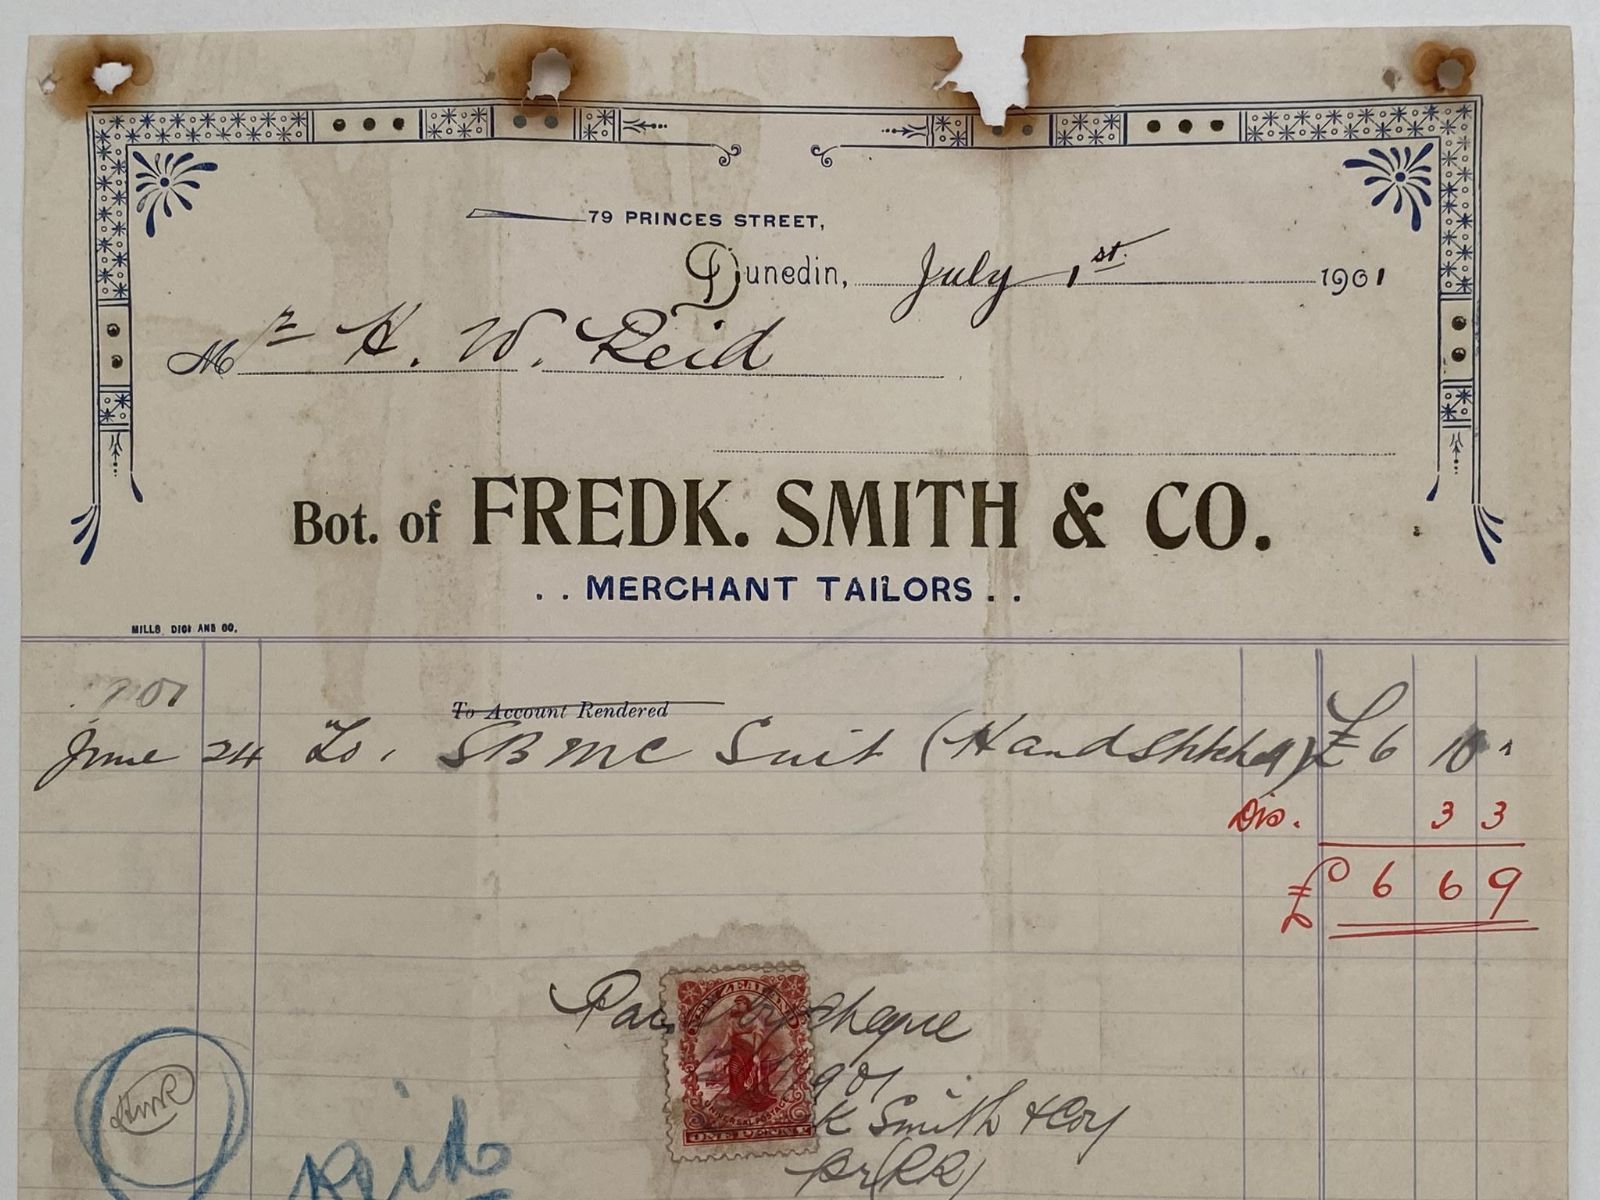 79 PRINCES STREET,
Dunedin, July 1st. 1901
Mr H. W. Reid
Bot. of FREDK. SMITH & CO.
. . MERCHANT TAILORS . .
MILLS, DICK AND CO.
To Account Rendered
June 24 To, SB MC Suit (Handstitched) £6 10 "
Dis. 3 3
£ 6 6 9
Paid by Cheque
NEW ZEALAND
1901
UNIVERSAL POSTAGE
K Smith & Coy
ONE PENNY
pr (RR)
HWR
Reid